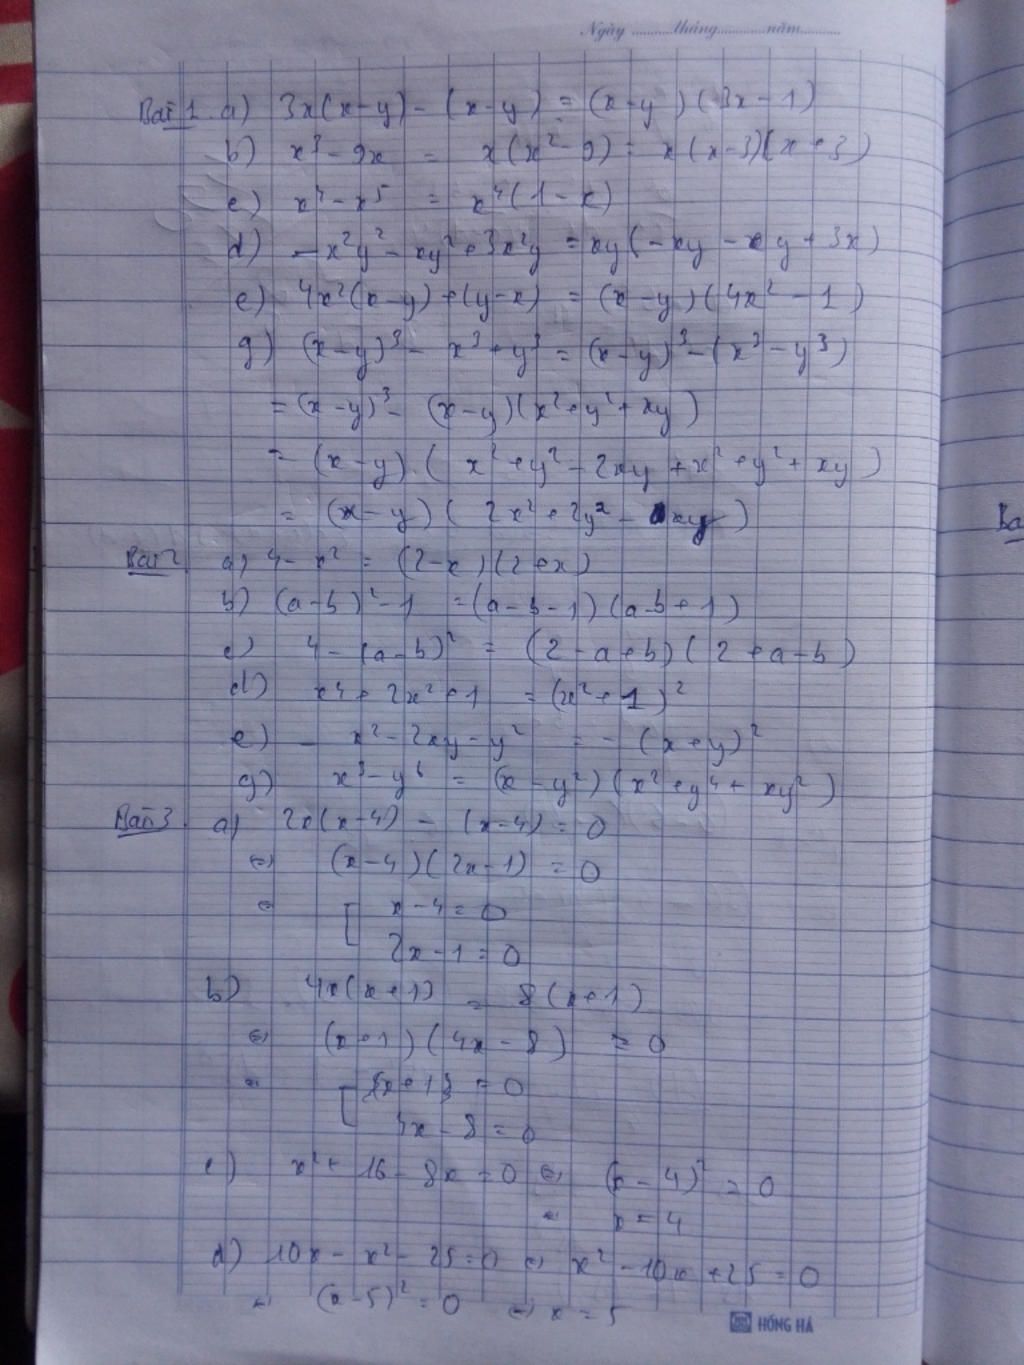 Ngày ............tháng............năm............
Bài 1. a) 3x(x-y) - (x-y) = (x-y)(3x-1)
b) x³ - 9x = x(x² - 9) = x(x-3)(x+3)
c) x⁴ - x⁵ = x⁴(1-x)
d) -x²y² - xy² + 3x²y = xy(-xy - y + 3x)
e) 4x²(x-y) + (y-x) = (x-y)(4x² - 1)
g) (x-y)³ - x³ + y³ = (x-y)³ - (x³ - y³)
= (x-y)³ - (x-y)(x² + y² + xy)
= (x-y).(x² + y² - 2xy + x² + y² + xy)
= (x-y)(2x² + 2y² - xy)
Bài 2 a) 4 - x² = (2-x)(2+x)
b) (a-b)² - 1 = (a-b-1)(a-b+1)
c) 4 - (a-b)² = (2-a+b)(2+a-b)
d) x⁴ + 2x² + 1 = (x² + 1)²
e) - x² - 2xy - y² = - (x+y)²
g) x³ - y⁶ = (x - y²)(x² + y⁴ + xy²)
Bài 3 a) 2x(x-4) - (x-4) = 0
⇔ (x-4)(2x-1) = 0
⇔ [ x-4 = 0
2x-1 = 0
b) 4x(x+1) = 8(x+1)
⇔ (x+1)(4x-8) = 0
⇔ [ x+1 = 0
4x-8 = 0
c) x² + 16 - 8x = 0 ⇔ (x-4)² = 0
⇔ x = 4
d) 10x - x² - 25 = 0 ⇔ x² - 10x + 25 = 0
⇔ (x-5)² = 0 ⇔ x = 5
HỒNG HÀ
Ba